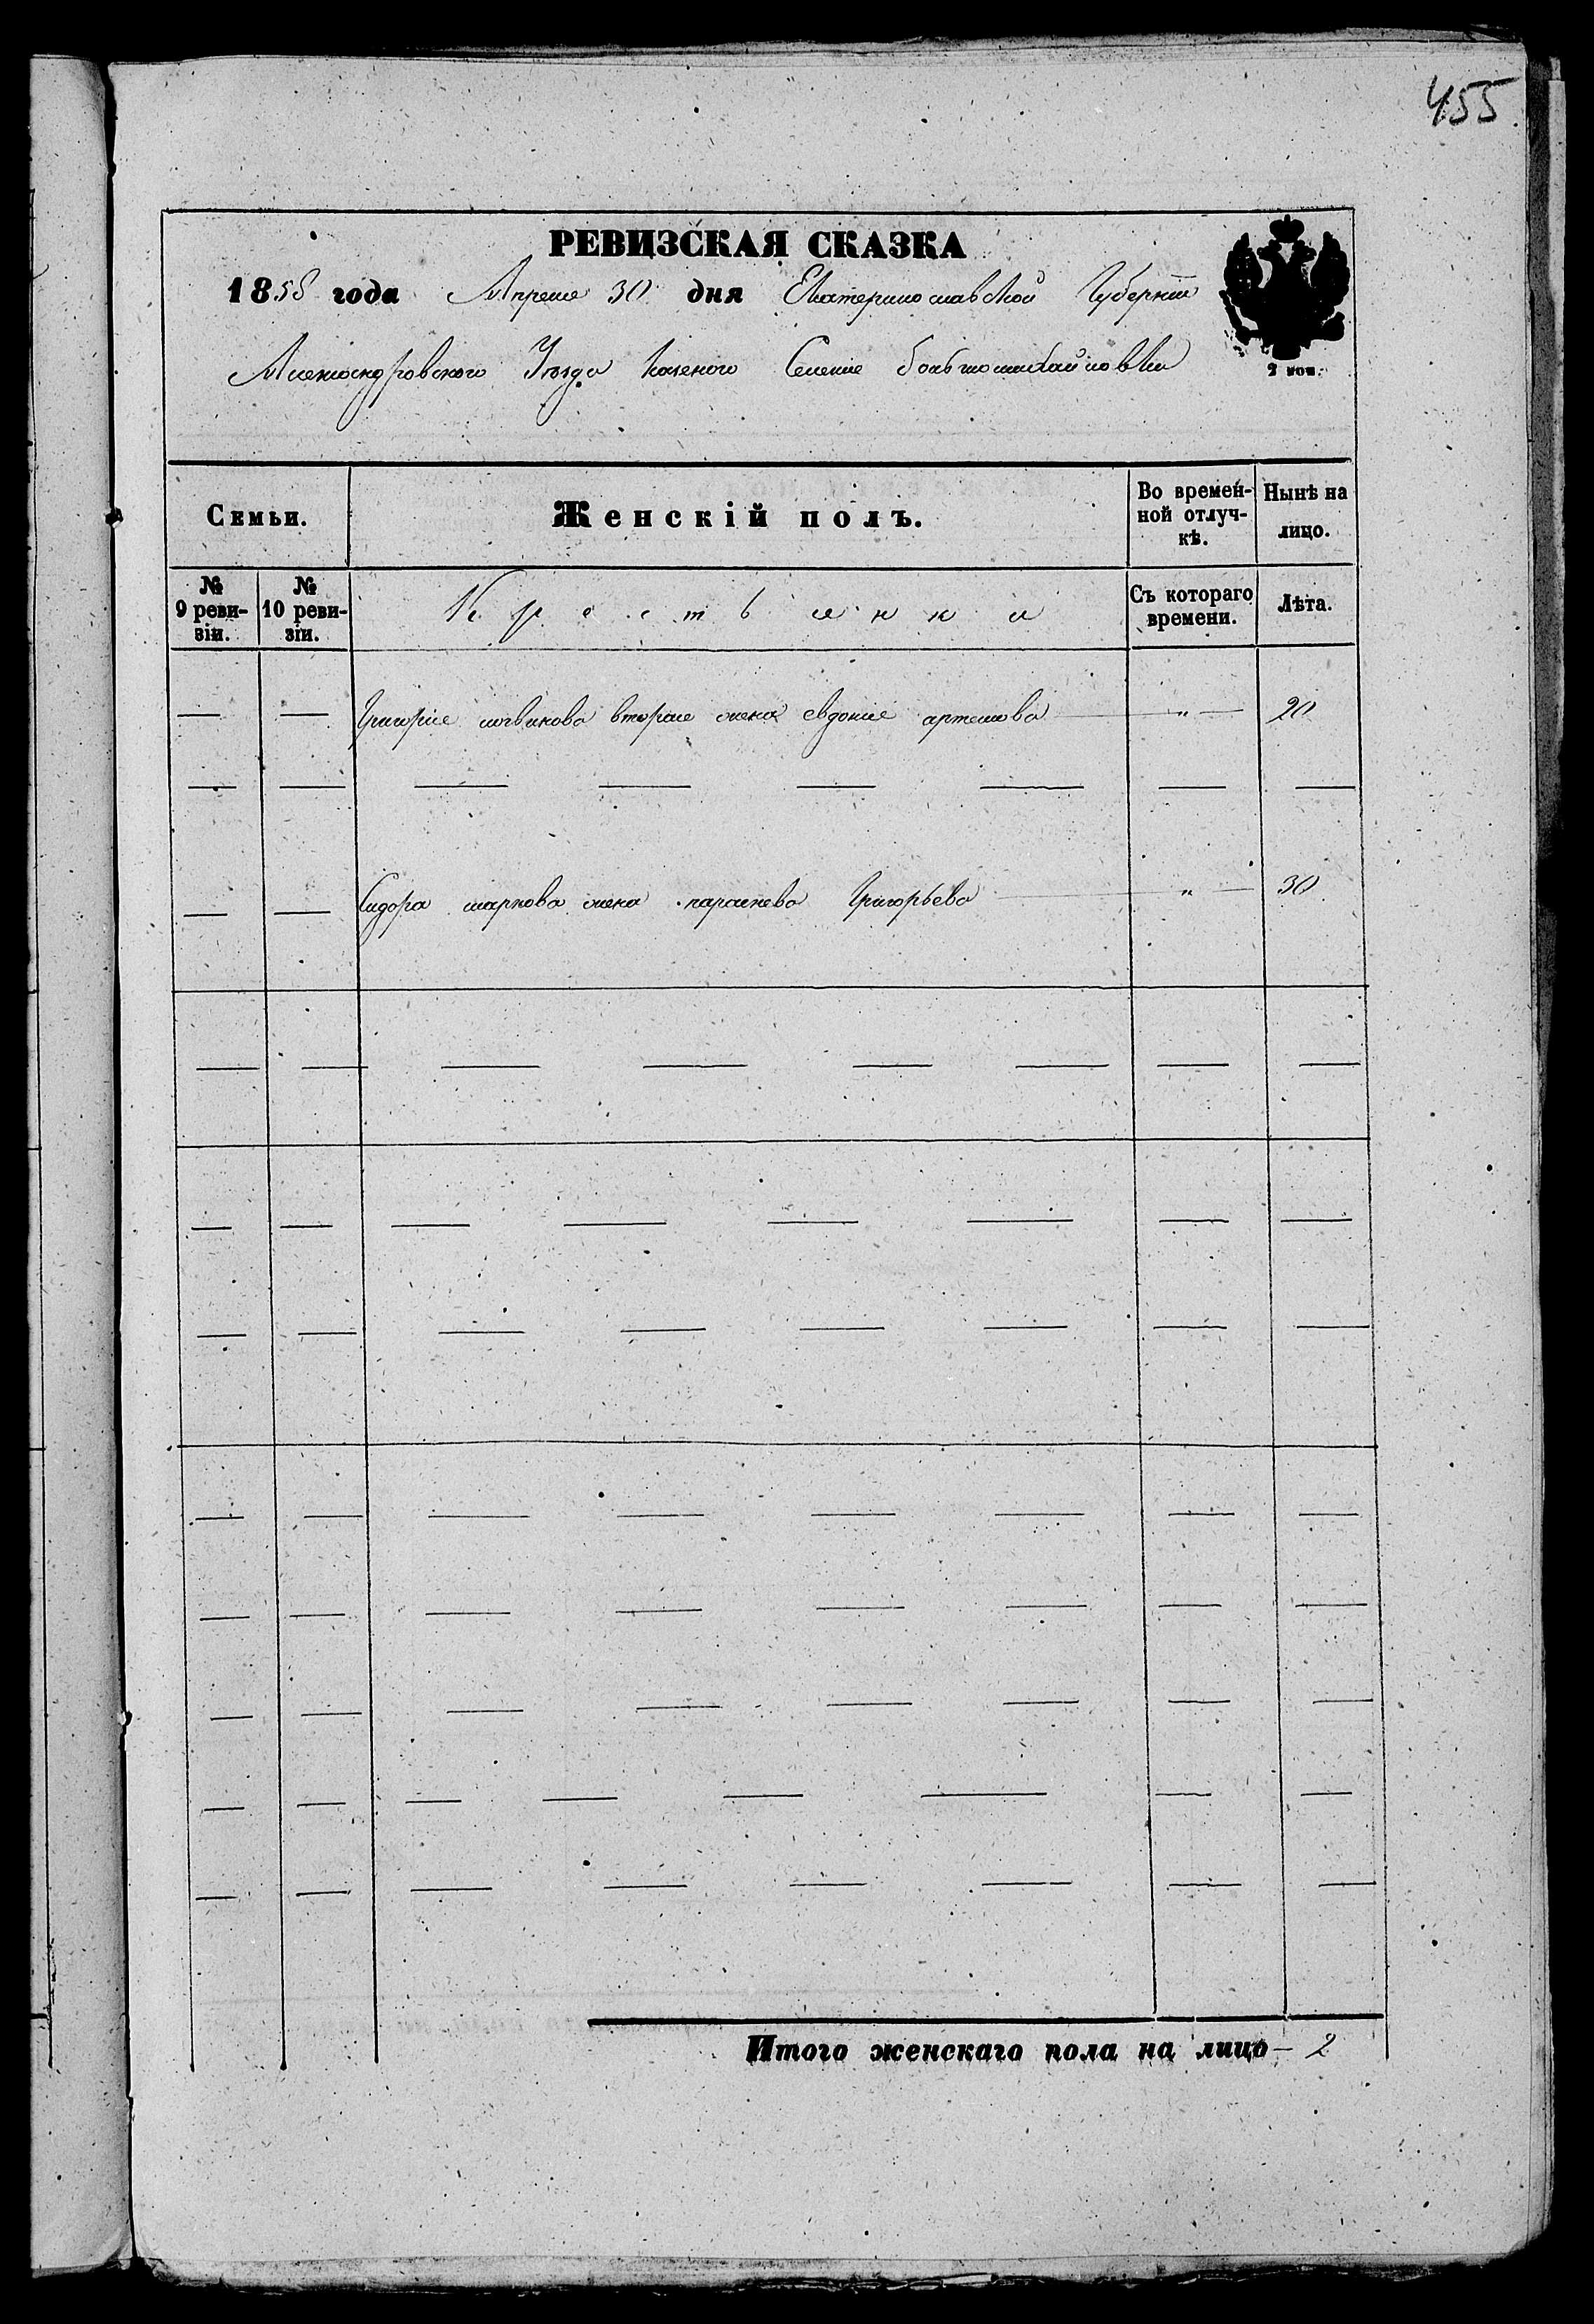 455
РЕВИЗСКАЯ СКАЗКА
1858 года Апреля 30 дня Екатеринославской Губернии
Александровского Уезда Селение
2 коп.
Семьи.
Женскій полъ.
Во времен-
ной отлуч-
кѣ.
Нынѣ на
лицо.
№
9 реви-
зіи.
№
10 реви-
зіи.
Крестьянки
Съ котораго
времени.
Лѣта.
Григория вторая жена евдокия артемова — " — 20
Сидора маркова жена параскева Григорьева — " — 30
Итого женскаго пола на лицо — 2